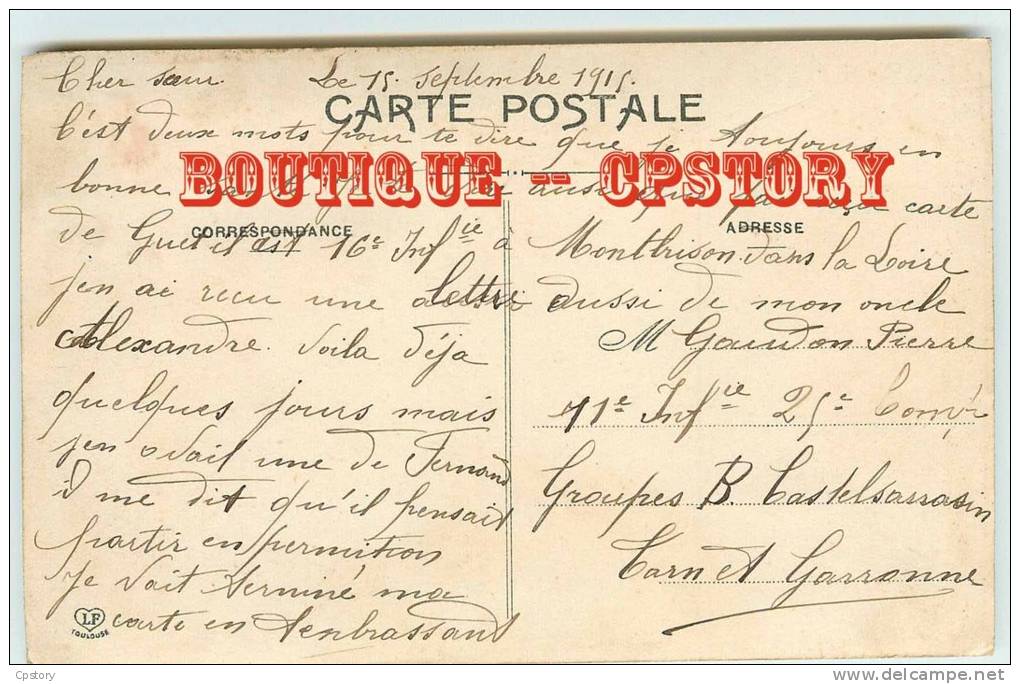 Cher sœur. Le 15. Septembre 1915.
CARTE POSTALE
C'est deux mots pour te dire que je toujours en
BOUTIQUE -- CPSTORY
bonne carte
CORRESPONDANCE
ADRESSE
de il est 16e Infie à Montbrison dans la Loire
j'en ai recu une lettre aussi de mon oncle
Alexandre. voila déja
quelques jours mais
j'en avait une de Fernand
i me dit qu'il pensait
partir en permition
Je vait terminé ma
carte en tenbrassant
M Gaudon Pierre
11e Infie 25e
Groupes B. Castelsarrasin
Tarn et Garronne
LF
TOULOUSE
Cpstory
www.delcampe.net